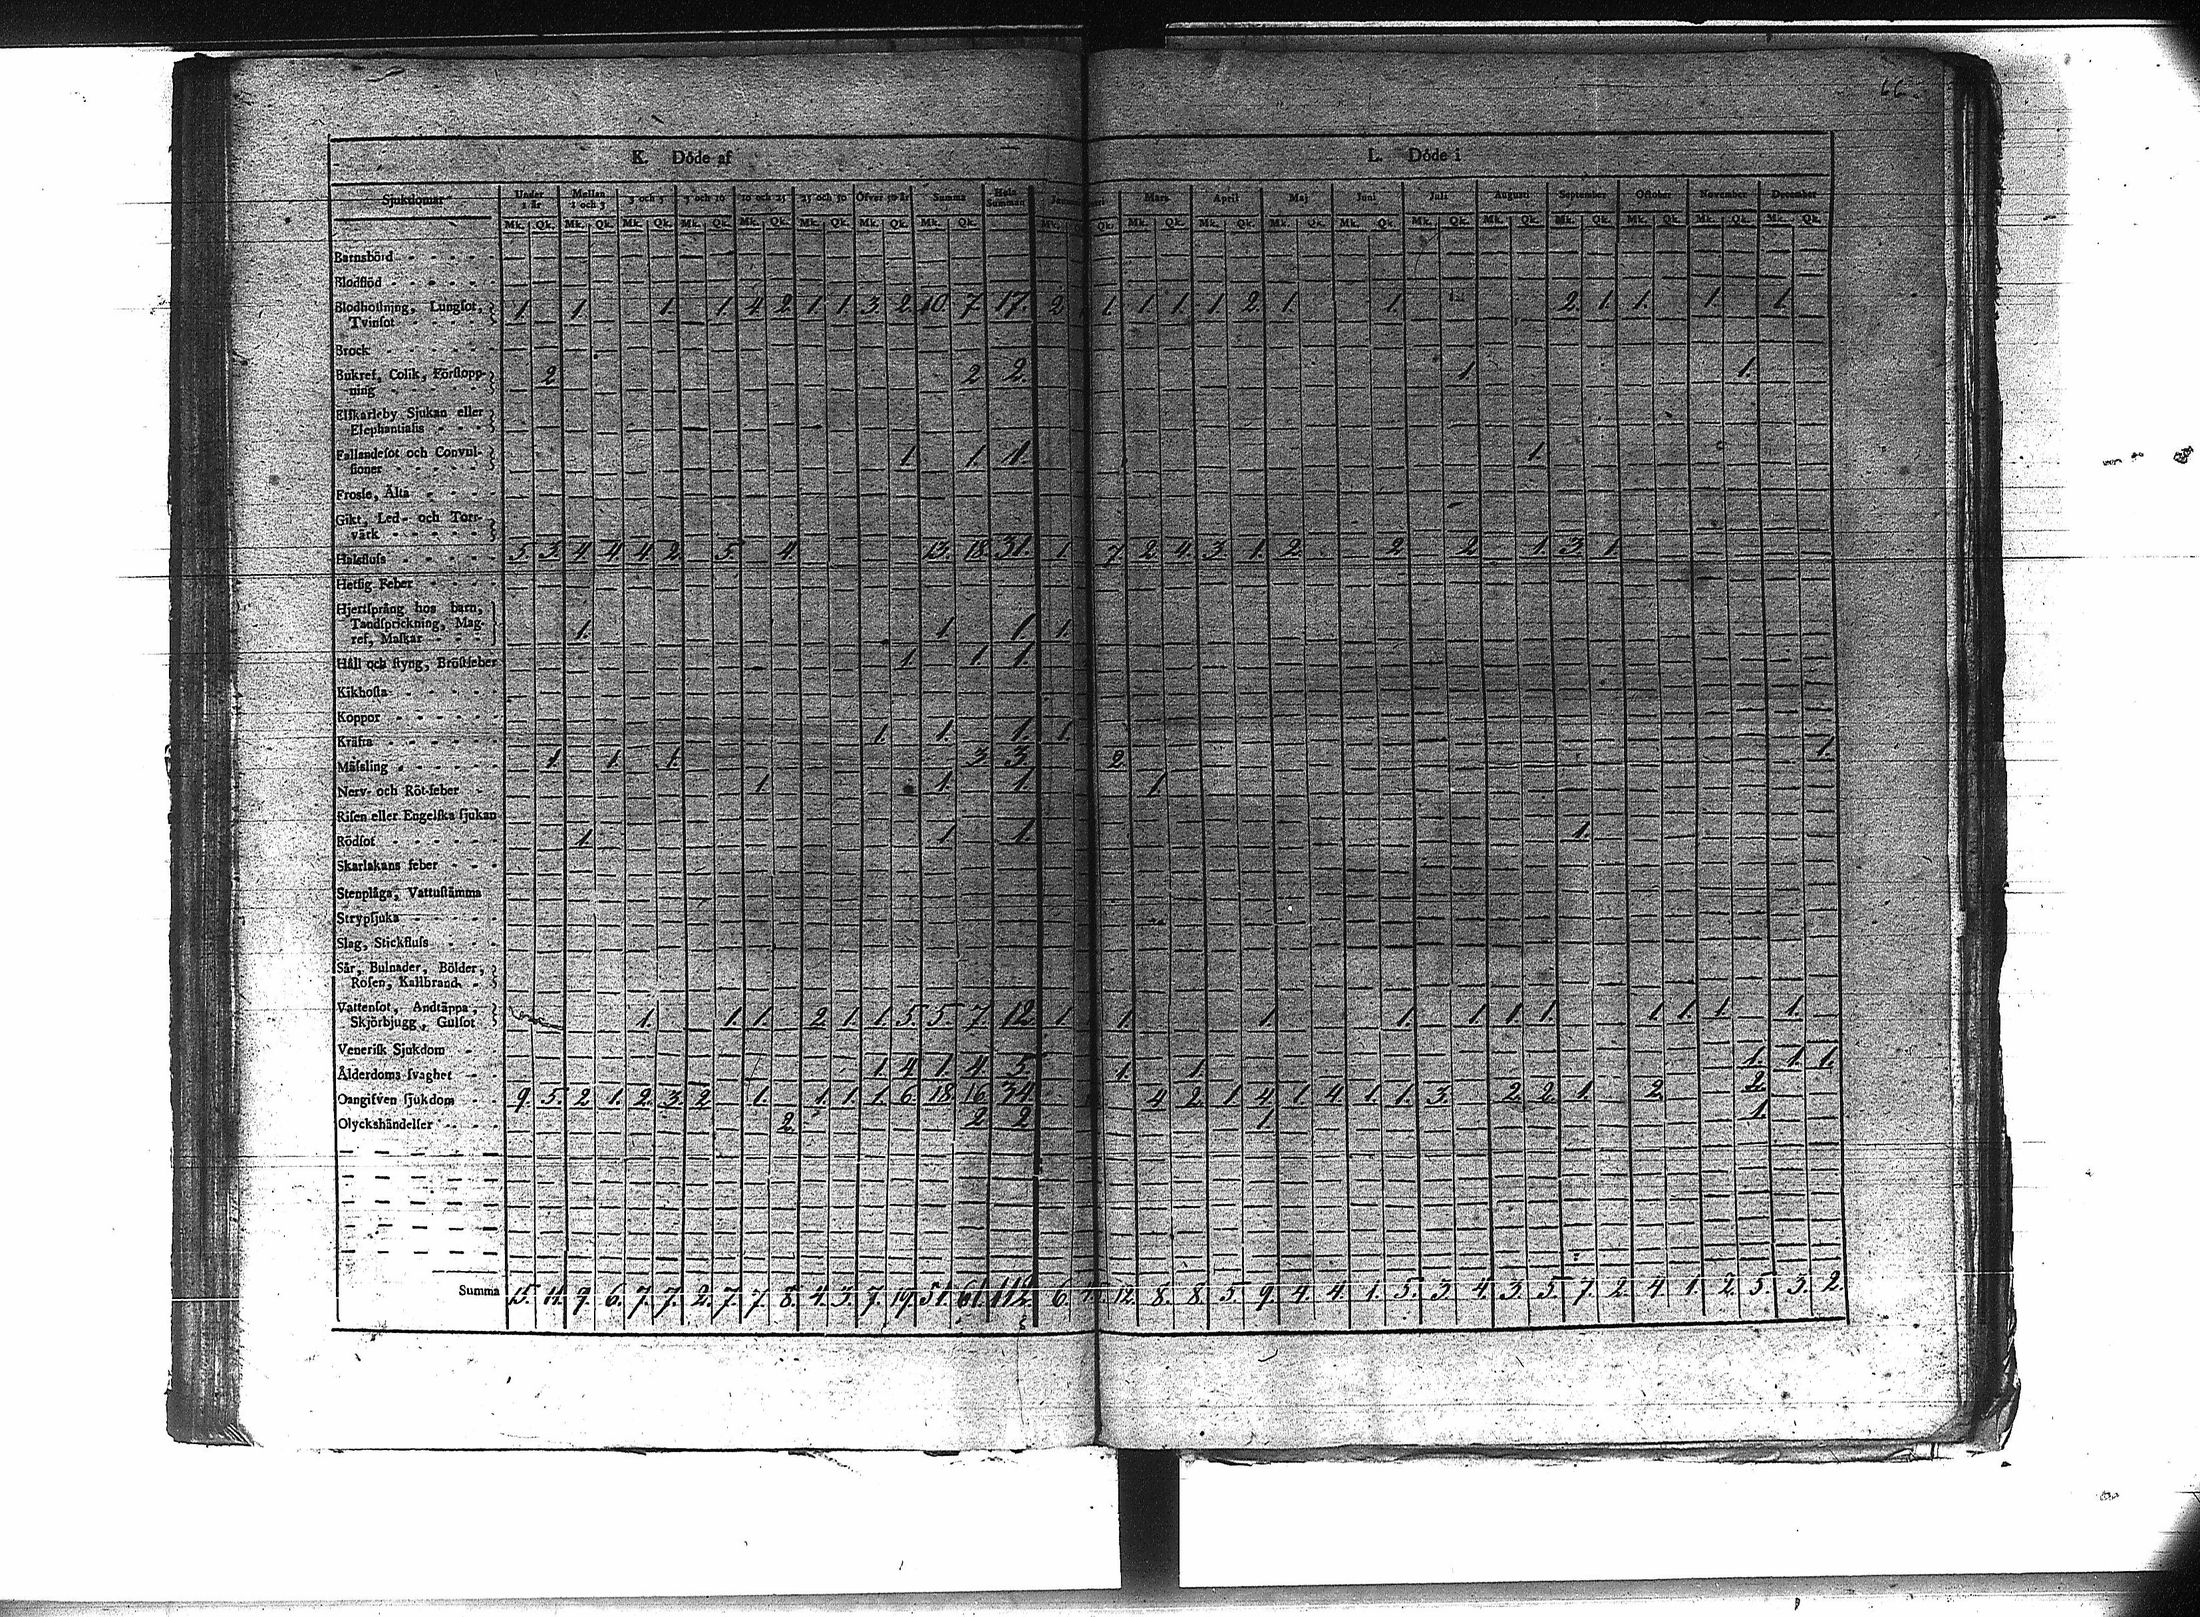 66.
K. Döde af
L. Döde i
Sjukdomar Under 1 år Mellan 1 och 3 3 och 5 5 och 10 10 och 25 25 och 50 Öfver 50 år Summa Hela Summan Mars April Maj Juni Juli Augusti September October November December
Mk. Qk. Mk. Qk. Mk. Qk. Mk. Qk. Mk. Qk. Mk. Qk. Mk. Qk. Mk. Qk. Mk. Qk. Mk. Qk. Mk. Qk. Mk. Qk. Mk. Qk. Mk. Qk. Mk. Qk. Mk. Qk. Mk. Qk. Mk. Qk. Mk. Qk.
Barnsbörd
Blodflöd
Blodhostning, Lungſot, Tvinſot 1. 1. 1. 1. 4. 2. 1. 1. 3. 2. 10. 7. 17. 2 1. 1. 1. 1. 2. 1. 1. 2. 1. 1. 1. 1.
Brock
Bukref, Colik, Förſtoppning 2 2 2. 1 1.
Elfkarleby Sjukan eller Elephantiaſis
Fallandeſot och Convulſioner 1. 1. 1. 1.
Frosſe, Älta
Gikt, Led- och Torrvärk
Halsfluſs 5. 3. 4. 4. 4. 2. 5. 4. 13. 18. 31. 1. 7. 2. 4. 3. 1. 2. 2 2 1. 3. 1.
Hetſig Feber
Hjertſprång hos barn, Tandſprickning, Magref, Maſkar 1. 1. 1 1.
Håll och ſtyng, Bröſtfeber 1. 1. 1.
Kikhoſta
Koppor
Kräfta 1. 1. 1. 1.
Mäſsling 1. 1. 1. 3. 3. 2. 1.
Nerv- och Röt-feber 1. 1. 1. 1.
Riſen eller Engelſka ſjukan
Rödſot 1. 1. 1. 1.
Skarlakans feber
Stenplåga, Vattuſtämma
Strypſjuka
Slag, Stickfluſs
Sår, Bulnader, Bölder, Roſen, Kallbrand
Vattenſot, Andtäppa, Skjörbjugg, Gulſot 1. 1. 1. 2. 1. 1. 5. 5. 7. 12 1. 1. 1. 1. 1. 1. 1. 1. 1. 1. 1.
Veneriſk Sjukdom
Ålderdoms-ſvaghet 1. 4. 1. 4. 5. 1. 1. 1. 1. 1.
Oangifven ſjukdom 9. 5. 2 1. 2. 3. 2 1. 1. 1. 1. 6. 18. 16. 34. 4. 2. 1 4. 1 4. 1. 1. 3. 2. 2. 1. 2. 2.
Olyckshändelſer 2. 2 2 1 1.
Summa 15. 11. 9. 6. 7. 7. 2. 7. 7. 8. 4. 3. 7. 19. 51. 61. 112. 6. 12. 8. 8. 5. 9. 4. 4. 1. 5. 3. 4. 3. 5. 7. 2. 4. 1. 2. 5. 3. 2.